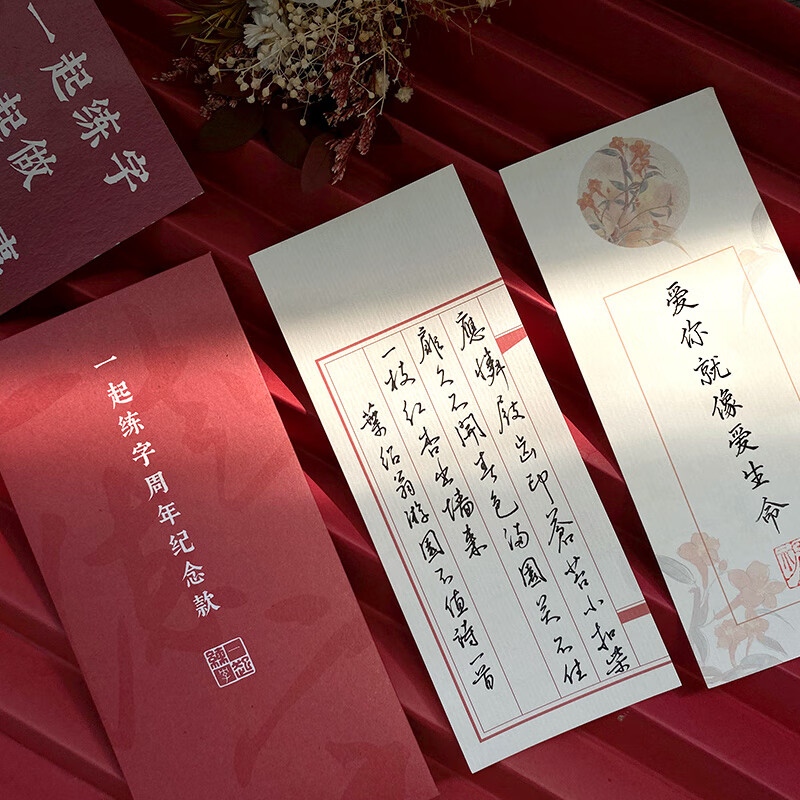 一起练字
起做
一起练字周年纪念款
一起练字
應憐屐齿印蒼苔小扣柴
扉久不開春色满園关不住
一枝红杏出墙来
葉绍翁游園不值詩一首
爱你就像爱生命